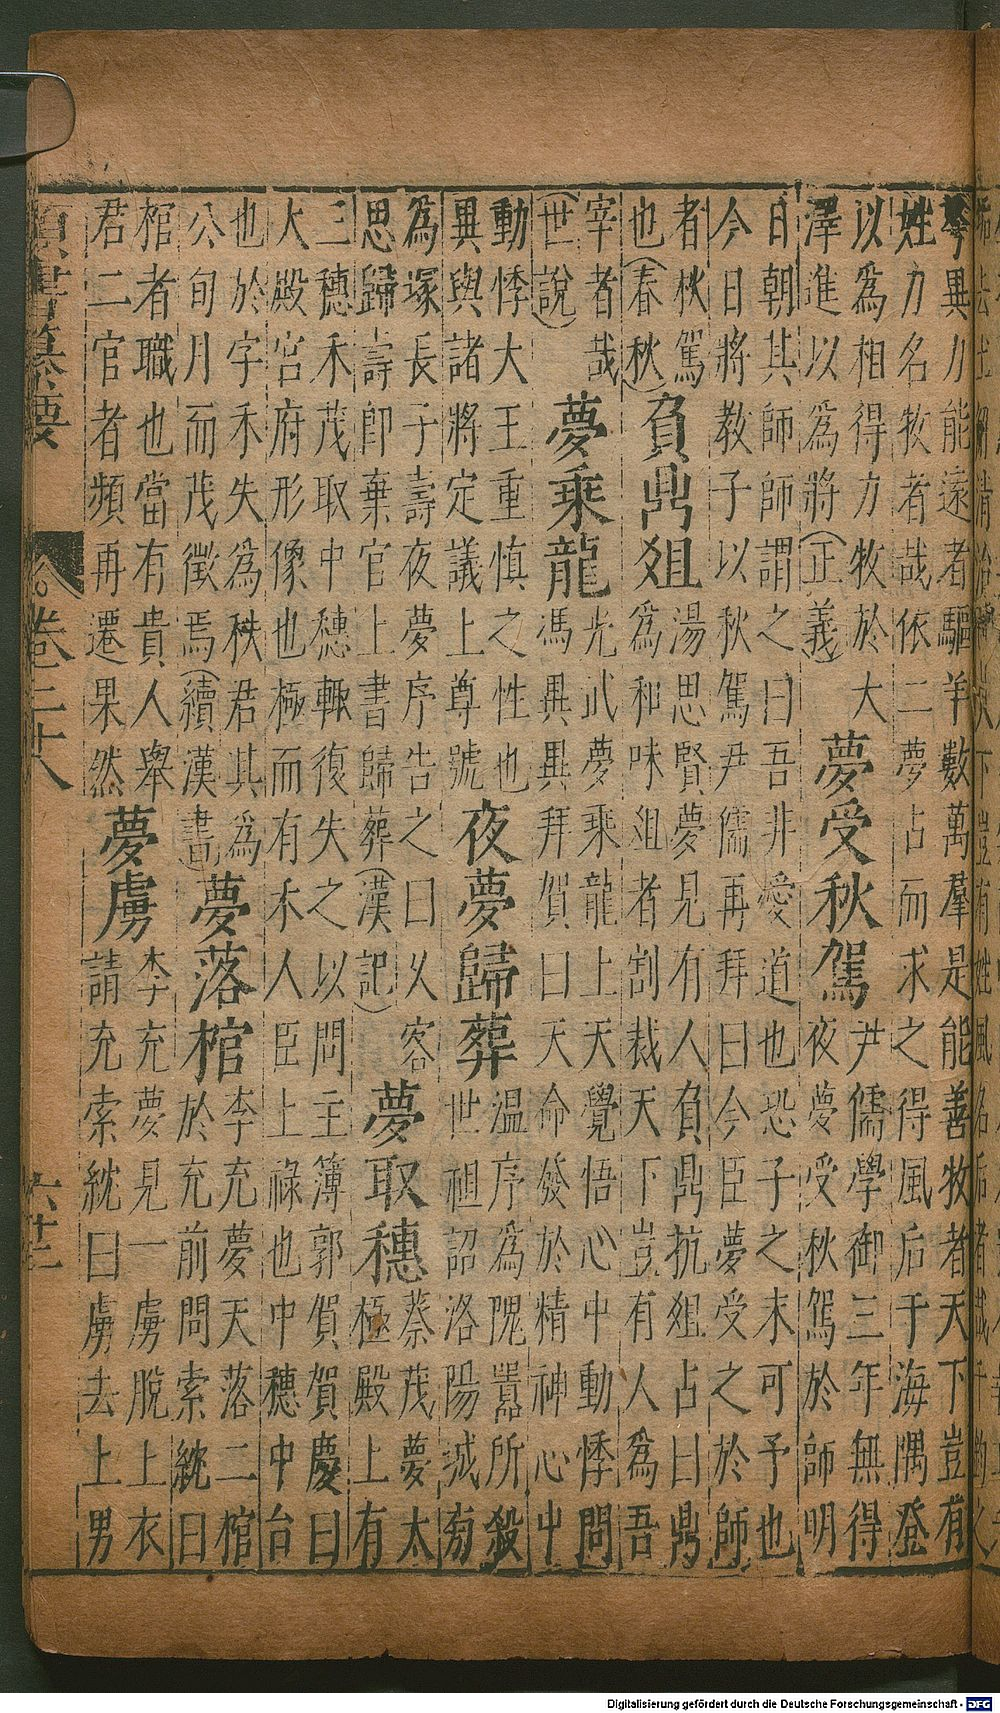 弩異力能遠者驅羊數萬羣是能善牧者天下豈有
姓力名牧者哉依二夢占而求之得風后于海隅登
以爲相得力牧於大
澤進以爲將（正義）
夢受秋駕
尹儒學御三年無得
夜夢受秋駕於師明
日朝其師師謂之曰吾非愛道也恐子之未可予也
今日將教子以秋駕尹儒再拜曰今臣夢受之於師
者秋駕
也（春秋）
負鼎俎
湯思賢夢見有人負鼎抗俎占曰鼎
爲和味俎者割裁天下豈有人爲吾
宰者哉
（世說）
夢乘龍
光武夢乘龍上天覺悟心中動悸問
馮異異拜賀曰天命發於精神心中
動悸大王重慎之性也
異與諸將定議上尊號
夜夢歸葬
溫序爲隗囂所殺
世祖詔洛陽城旁
爲塚長子壽夜夢序告之曰久客
思歸壽卽棄官上書歸葬（漢記）
夢取穗
蔡茂夢太
極殿上有
三穗禾茂取中穗輒復失之以問主簿郭賀賀慶曰
大殿宮府形像也極而有禾人臣上祿也中穗中台
也於字禾失爲秩君其爲
公旬月而茂徵焉（續漢書）
夢落棺
李充夢天落二棺
於充前問索紞曰
棺者職也當有貴人舉
君二官者頻再遷果然
夢虜
李充夢見一虜脫上衣
請充索紞曰虜去上男
類書纂要
卷二十八
Digitalisierung gefördert durch die Deutsche Forschungsgemeinschaft - DFG